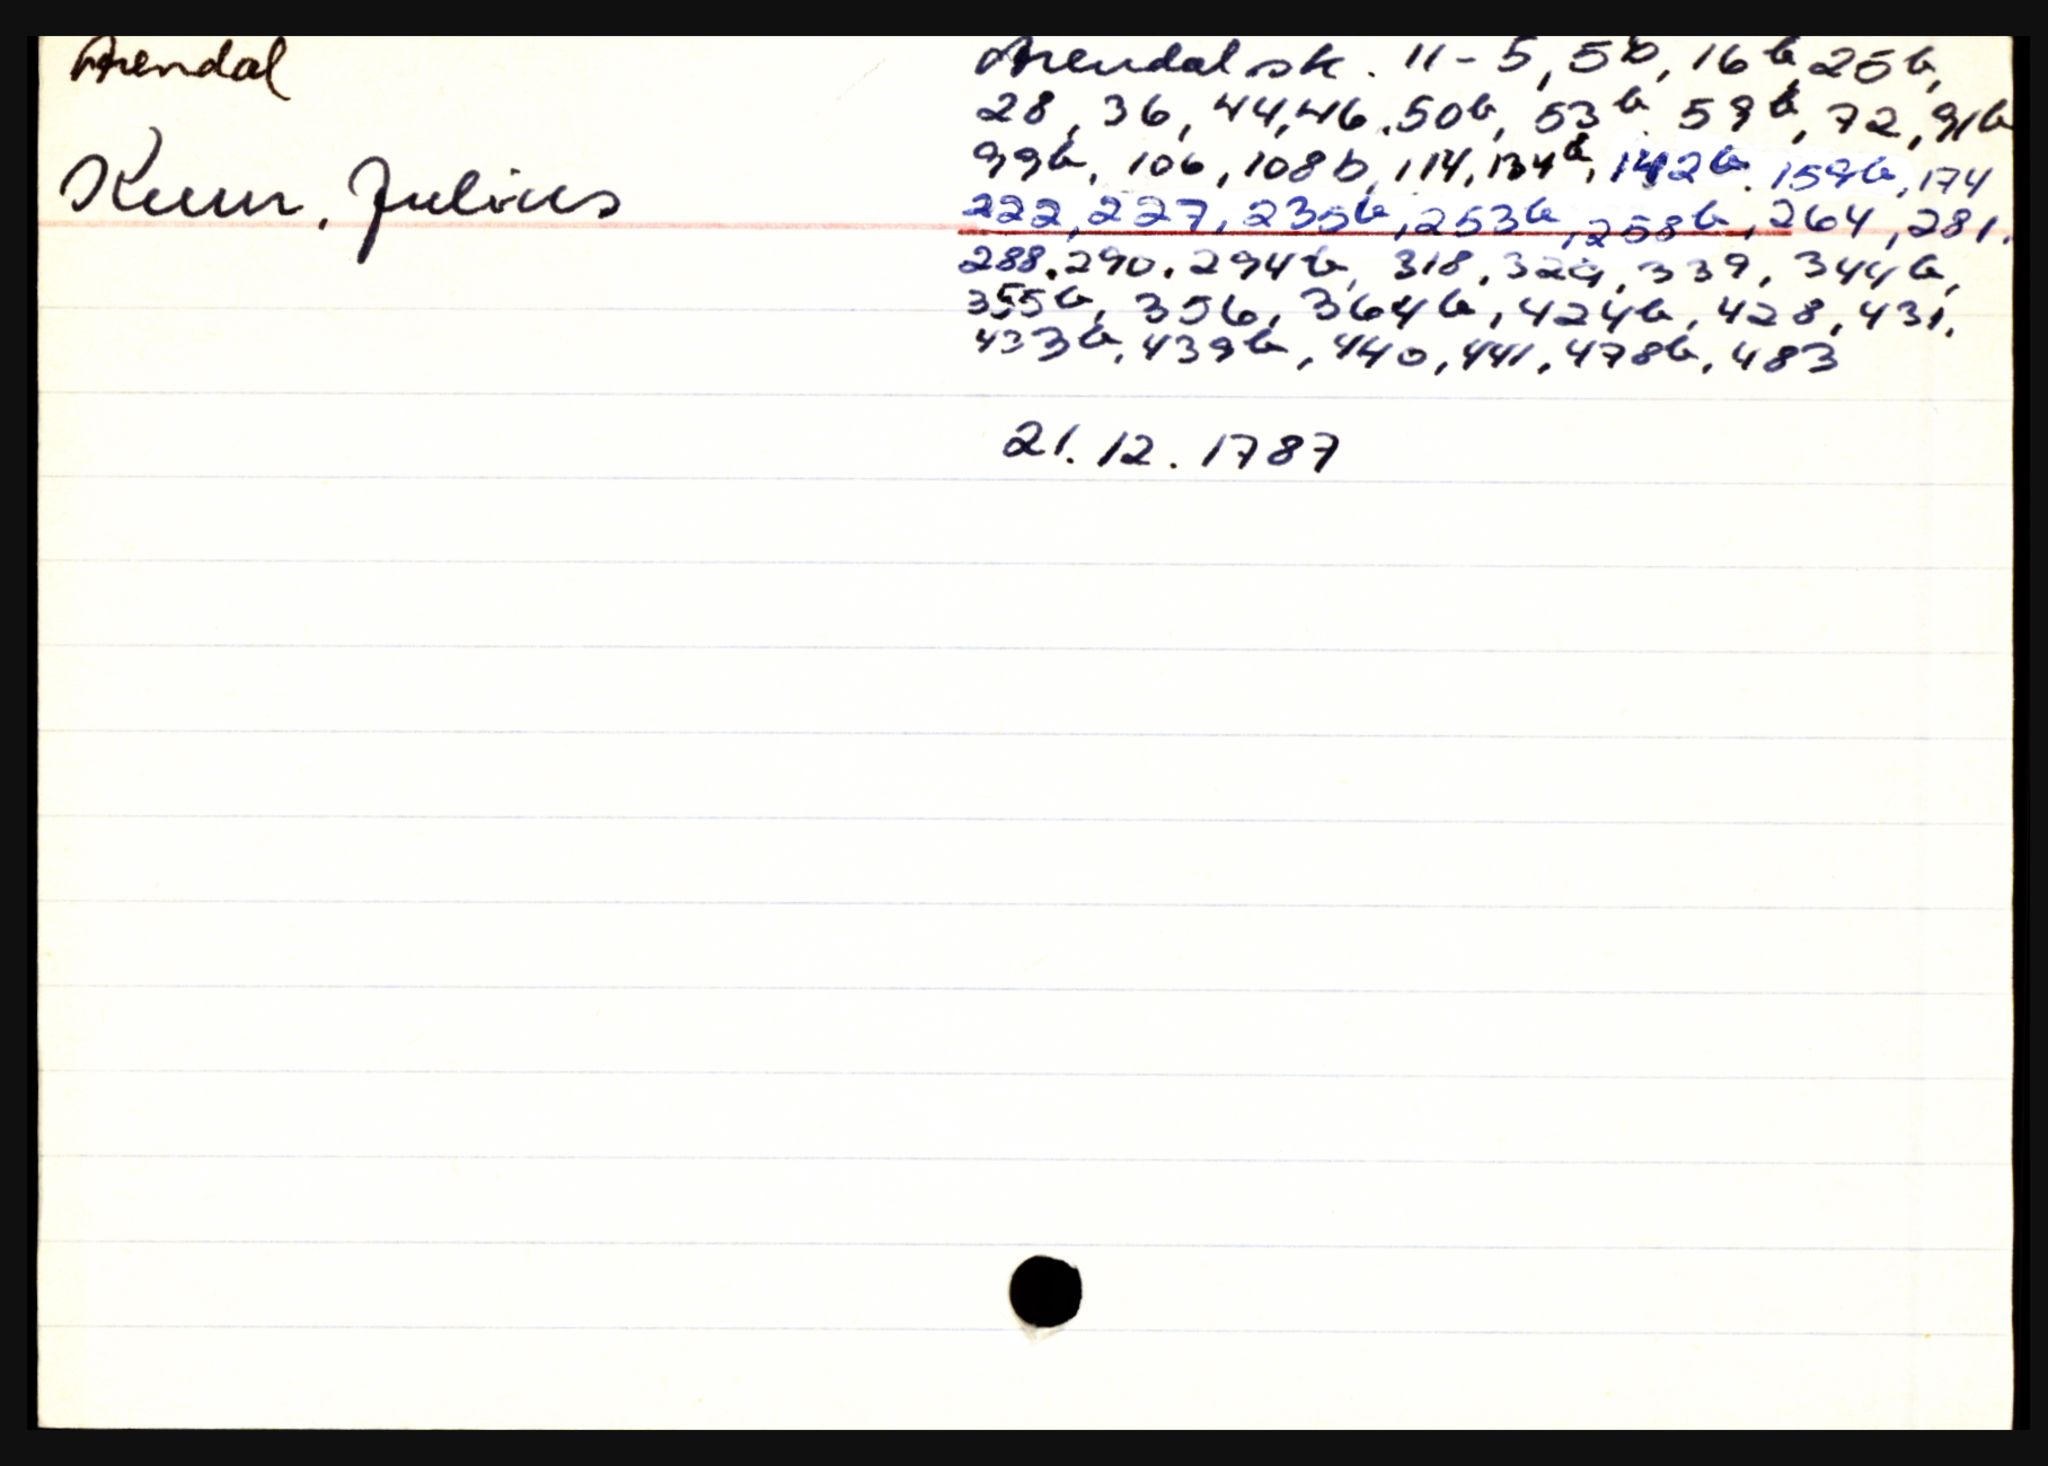 Arendal
Kuur, Julius
Arendal sk. 11-5, 5b, 16b, 25b,
28, 36, 44, 46, 50b, 53b, 59b, 72, 91b
99b, 106, 108b, 114, 134b, 142b, 159b, 174
222, 227, 235b, 253b, 258b, 264, 281.
288. 290. 294b, 318, 329, 339, 344b,
355b, 356, 364b, 424b, 428, 431.
433b, 439b, 440, 441, 478b, 483
21. 12. 1787